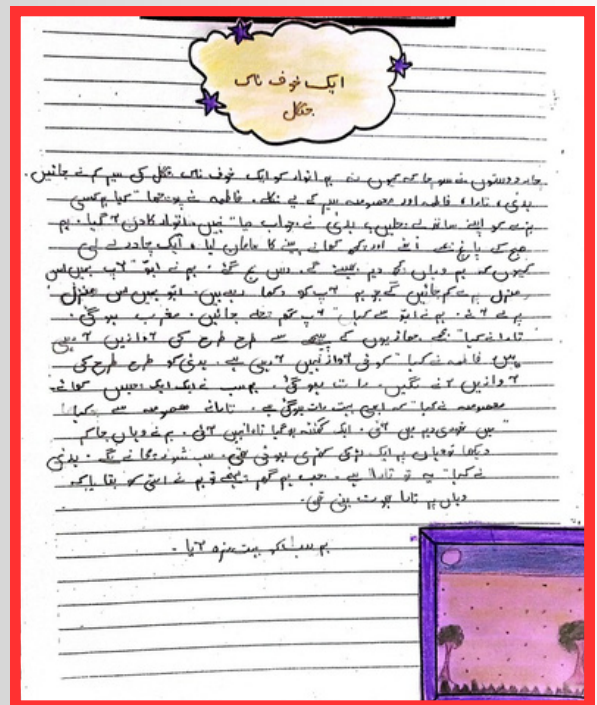 ایک خوف ناک
جنگل
چار دوستوں نے سوچا کہ کیوں نہ ہم اتوار کو ایک خوف ناک جنگل کی سیر کرنے جائیں۔
بدی، تارا، فاطمہ اور معصومہ سیر کے لیے نکلے۔ فاطمہ نے پوچھا "کیا ہم کسی
بڑے کو اپنے ساتھ لے چلیں، بدی نے جواب دیا "نہیں۔ اتوار کا دن آ گیا۔ ہم
صبح کے پانچ بجے اٹھے اور کچھ کھانے پینے کا سامان لیا، ایک چادر لے لی
کیوں کہ ہم وہاں کچھ دیر بیٹھیں گے۔ دس بج گئے۔ ہم نے ابو "آپ ہمیں اس
منزل پر لے کر جائیں گے جو ہم آپ کو دکھا رہے ہیں۔ ابو ہمیں اس منزل
پر لے آئے۔ ہم نے ابو سے کہا "آپ گھر چلے جائیں۔ مغرب ہو گئی۔
تارا نے کہا" مجھے جھاڑیوں کے پیچھے سے طرح طرح کی آوازیں آ رہی
ہیں، فاطمہ نے کہا "کوئی آواز نہیں آ رہی ہے۔ بدی کو طرح طرح کی
آوازیں آنے لگیں۔ رات ہو گئی۔ ہم سب نے ایک ایک چپس کھائے۔
معصومہ نے کہا" کہ ابھی بہت رات ہو گئی ہے۔ تارا نے معصومہ سے کہا"
"میں تھوڑی دیر میں آئی۔ ایک گھنٹہ ہو گیا تارا نہیں آئی۔ ہم نے وہاں جا کر
دیکھا تو وہاں پر ایک لڑکی کھڑی ہوئی تھی۔ سب شور مچانے لگے۔ بدی
نے کہا" یہ تو تارا ہے۔ جب ہم گھر پہنچے تو ہم نے امی کو بتایا کہ
وہاں پر تارا بھوت بنی تھی۔
ہم سب کو بہت مزہ آیا۔